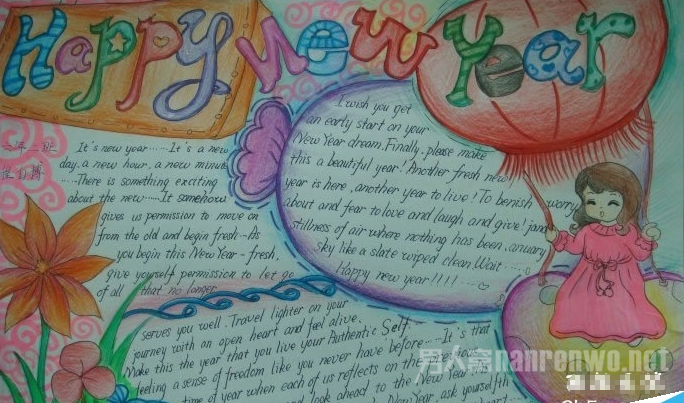 Happy New Year
六年二班
It's new year......It's a new
day, a new hour, a new minute
......There is something exciting
about the new....It somehow
gives us permission to move on
from the old and begin fresh...As
you begin this New Year - fresh,
give yourself permission to let go
of all that no longer
serves you well. Travel lighter on your
journey with an open heart and feel alive.
Make this the year that you live your Authentic Self.
feeling a sense of freedom like you never have before......It's that
time of year when each of us reflects on the previous
and look ahead to the New Year.
Year, ask yourself
I wish you get
an early start on your
New Year dream. Finally, please make
this a beautiful year! Another fresh new
year is here, another year to live! To benish worry
about and fear to love and laugh and give! jand
stillness of air where nothing has been, anuary
sky like a slate wiped clean. Wait......
Happy new year!!!!......
男人窝nanrenwo.net